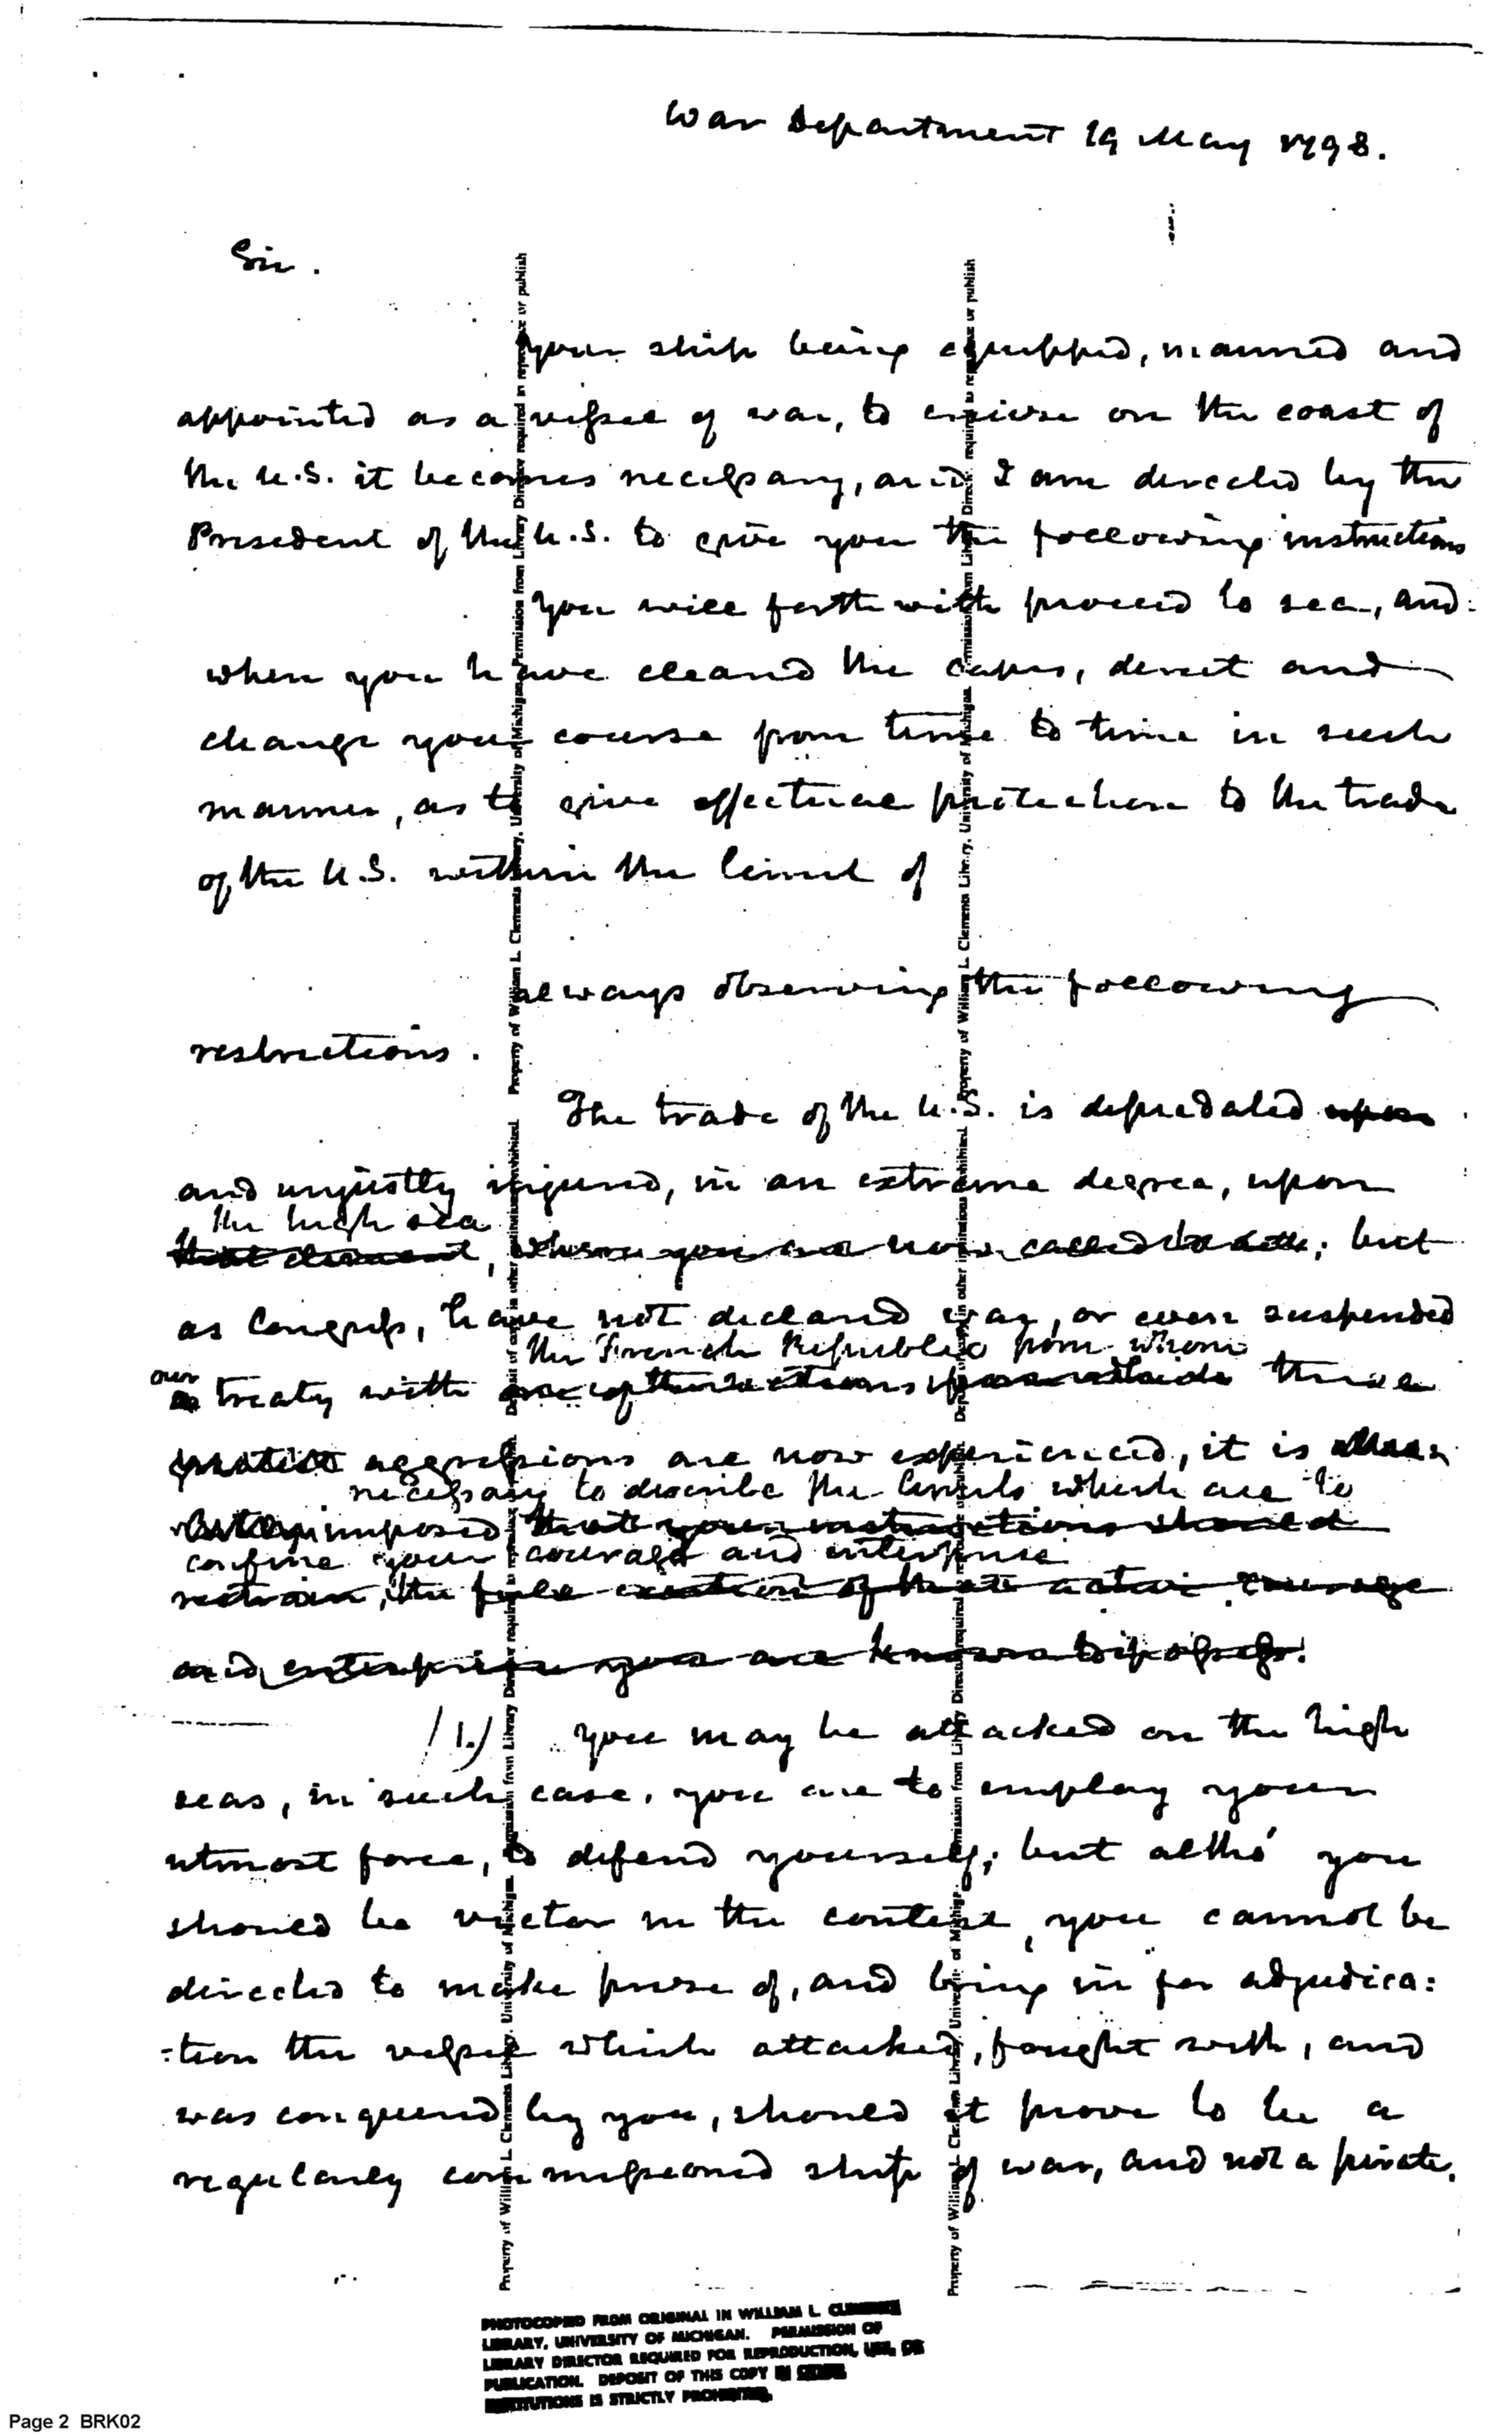 War Department 19 May 1798.
Sir.
Your ship being equipped, manned and
appointed as a vessel of war, to cruise on the coast of
the U.S. it becomes necessary, and I am directed by the
President of the U.S. to give you the following instructions
You will forthwith proceed to sea, and
when you have cleared the capes, direct and
change your course from time to time in such
manner, as to give effectual protection to the trade
of the U.S. within the limit of
always observing the following
restrictions.
The trade of the U.S. is depredated upon
and unjustly injured, in an extreme degree, upon
the high sea
that element, whereon you are now called to act; but
as Congress, have not declared war, or even suspended
the French Republic from whom
our
treaty with one of the nations from whom these
aggressions are now experienced, it is
necessary to describe the limits which are to
imposed that your instructions should
confine your courage and enterprise
restrain, the full exertion of that active courage
and enterprise you are known to possess.
/1./ You may be attacked on the high
seas, in such case, you are to employ your
utmost force, to defend yourself; but altho' you
should be victor in the contest, you cannot be
directed to make prize of, and bring in for adjudica:
:tion the vessel which attacked, fought with, and
was conquered by you, should it prove to be a
regularly commissioned ship of war, and not a pirate.
Property of William L. Clements Library, University of Michigan. Permission from Library Director required to reproduce or publish
Property of William L. Clements Library, University of Michigan. Permission from Library Director required to reproduce or publish
Property of William L. Clements Library, University of Michigan. Permission from Library Director required to reproduce or publish. Deposit of copy in other institutions prohibited.
Property of William L. Clements Library, University of Michigan. Permission from Library Director required to reproduce or publish. Deposit of copy in other institutions prohibited.
PHOTOCOPIED FROM ORIGINAL IN WILLIAM L. CLEMENTS
LIBRARY, UNIVERSITY OF MICHIGAN. PERMISSION OF
LIBRARY DIRECTOR REQUIRED FOR REPRODUCTION, USE, OR
PUBLICATION. DEPOSIT OF THIS COPY IN OTHER
INSTITUTIONS IS STRICTLY PROHIBITED.
Page 2 BRK02